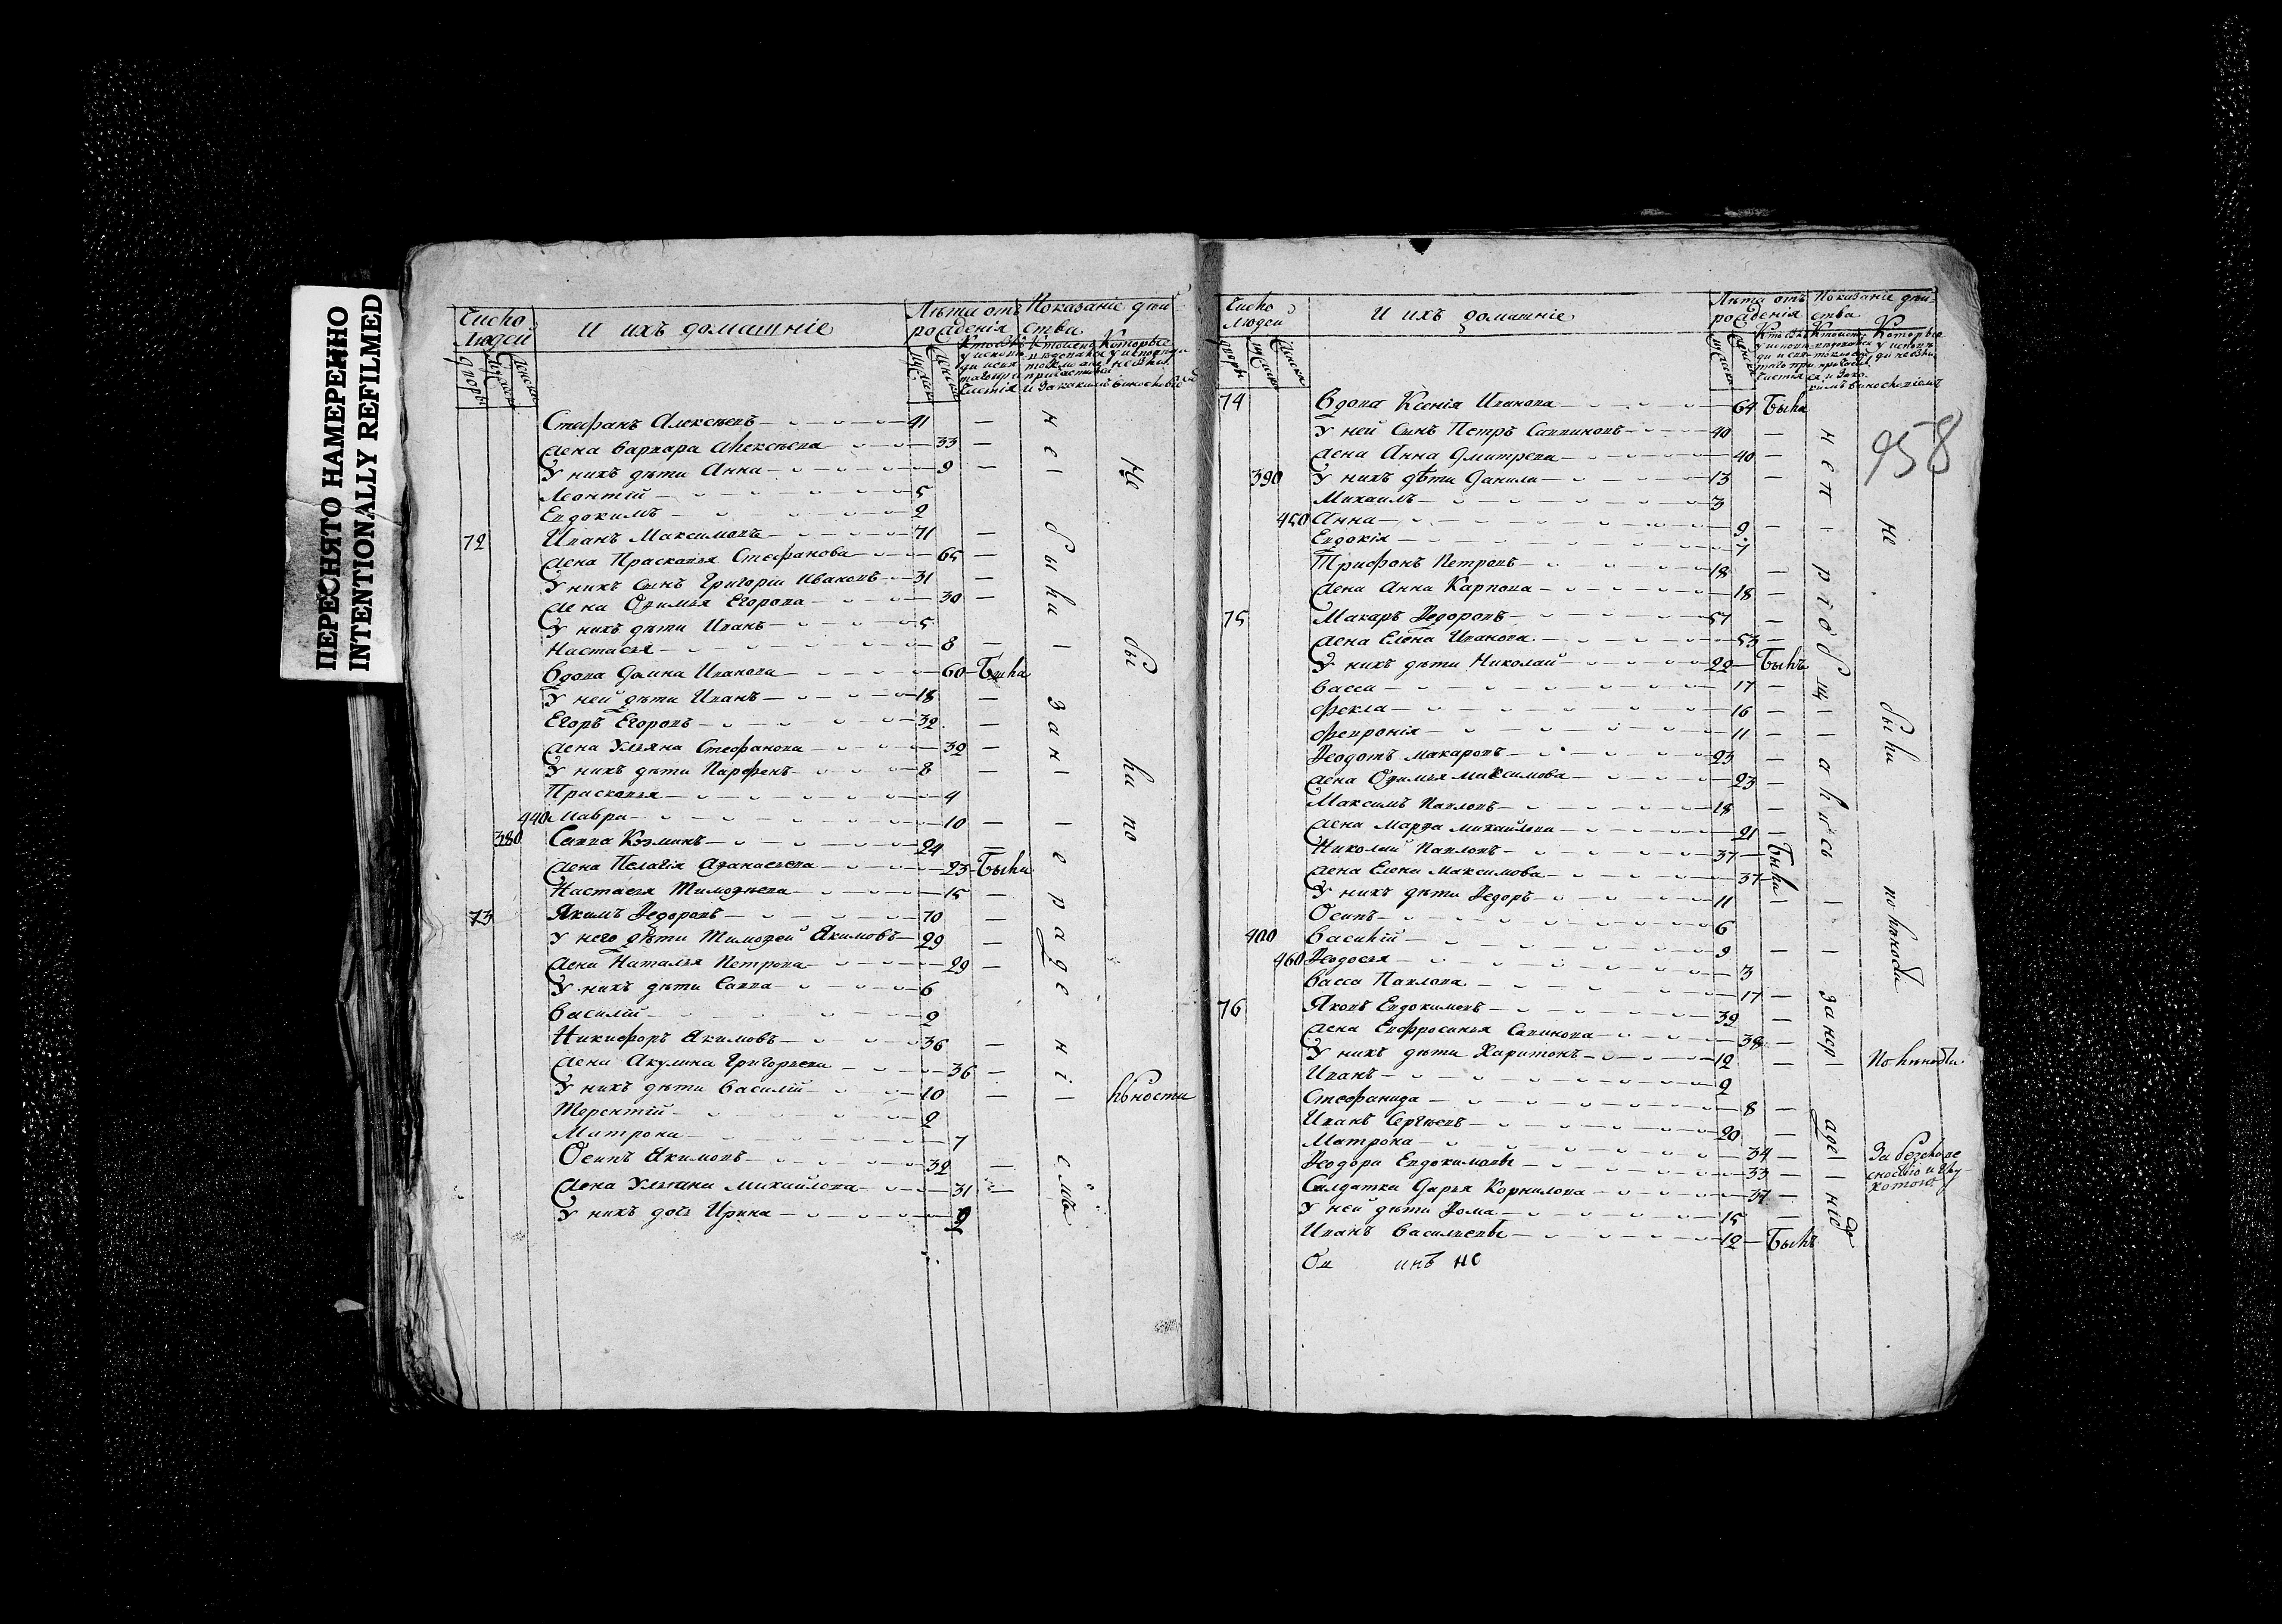 ПЕРЕСНЯТО НАМЕРЕННО
INTENTIONALLY REFILMED
Число людей
И ихъ домашніе
Лѣта отъ рожденія
Показаніе дѣйства
дворы
Мужска
Женска
Стефанъ Алексѣевъ 41
жена Варвара Алексѣева 33
У нихъ дѣти Анна 9
Леонтій 5
Евдокимъ 2
72 Иванъ Максимовъ 71
жена Прасковья Стефанова 65
У нихъ Сынъ Григоріи Ивановъ 31
жена Офимья Егорова 30
У нихъ дѣти Иванъ 5
Настасья 8
Вдова Домна Иванова 60 Была
У ней дѣти Иванъ 18
Егоръ Егоровъ 32
жена Ульяна Стефанова 32
У нихъ дѣти Парфенъ 8
Прасковья 4
440 Мавра 10
380 Савва Козминъ 24
жена Пелагія Афанасьева 23 Была
Настасья Тимофеева 15
73 Якимъ Ѳедоровъ 70
У него дѣти Тимофей Якимовъ 29
жена Наталья Петрова 29
У нихъ дѣти Савва 6
Василій 2
Никифоръ Якимовъ 36
жена Акулина Григорьева 36
У нихъ дѣти Василій 10
Терентій 2
Матрона 7
Осипъ Якимовъ 32
жена Ульяна Михайлова 31
У нихъ дочь Ирина 2
не были за нерадениемъ
не были по
лѣности
Число людей
И ихъ домашніе
Лѣта отъ рожденія
Показаніе дѣйства
дворы
Мужска
Женска
958
74 Вдова Ксенія Иванова 64 Была
У ней Сынъ Петръ Саввиновъ 40
жена Анна Дмитрева 40
390 У нихъ дѣти Данила 13
Михаилъ 3
450 Анна 9
Евдокія 7
Трифонъ Петровъ 18
жена Анна Карпова 18
75 Макаръ Ѳедоровъ 57
жена Елена Иванова 53
У нихъ дѣти Николай 22 Былъ
Васса 17
Фекла 16
Февронія 11
Ѳедотъ Макаровъ 23
жена Офимья Максимова 23
Максимъ Павловъ 18
жена Марфа Михайлова 21
Николай Павловъ 37 Были
жена Елена Максимова 37
У нихъ дѣти Ѳедоръ 11
Осипъ 6
400 Василій 9
460 Ѳедосья 3
Васса Павлова 17
76 Яковъ Евдокимовъ 39
жена Евфросинья Саввинова 38
У нихъ дѣти Харитонъ 12 По лѣности
Иванъ 2
Стефанида 8
Иванъ Сергѣевъ 20
Матрона 34
Ѳедора Евдокимовы 33
Салдатка Дарья Корнилова 37
У ней дѣти Ѳома 15
Иванъ Васильевы 12 Былъ
не приобщались за нерадение
не были по лѣности
инъ не